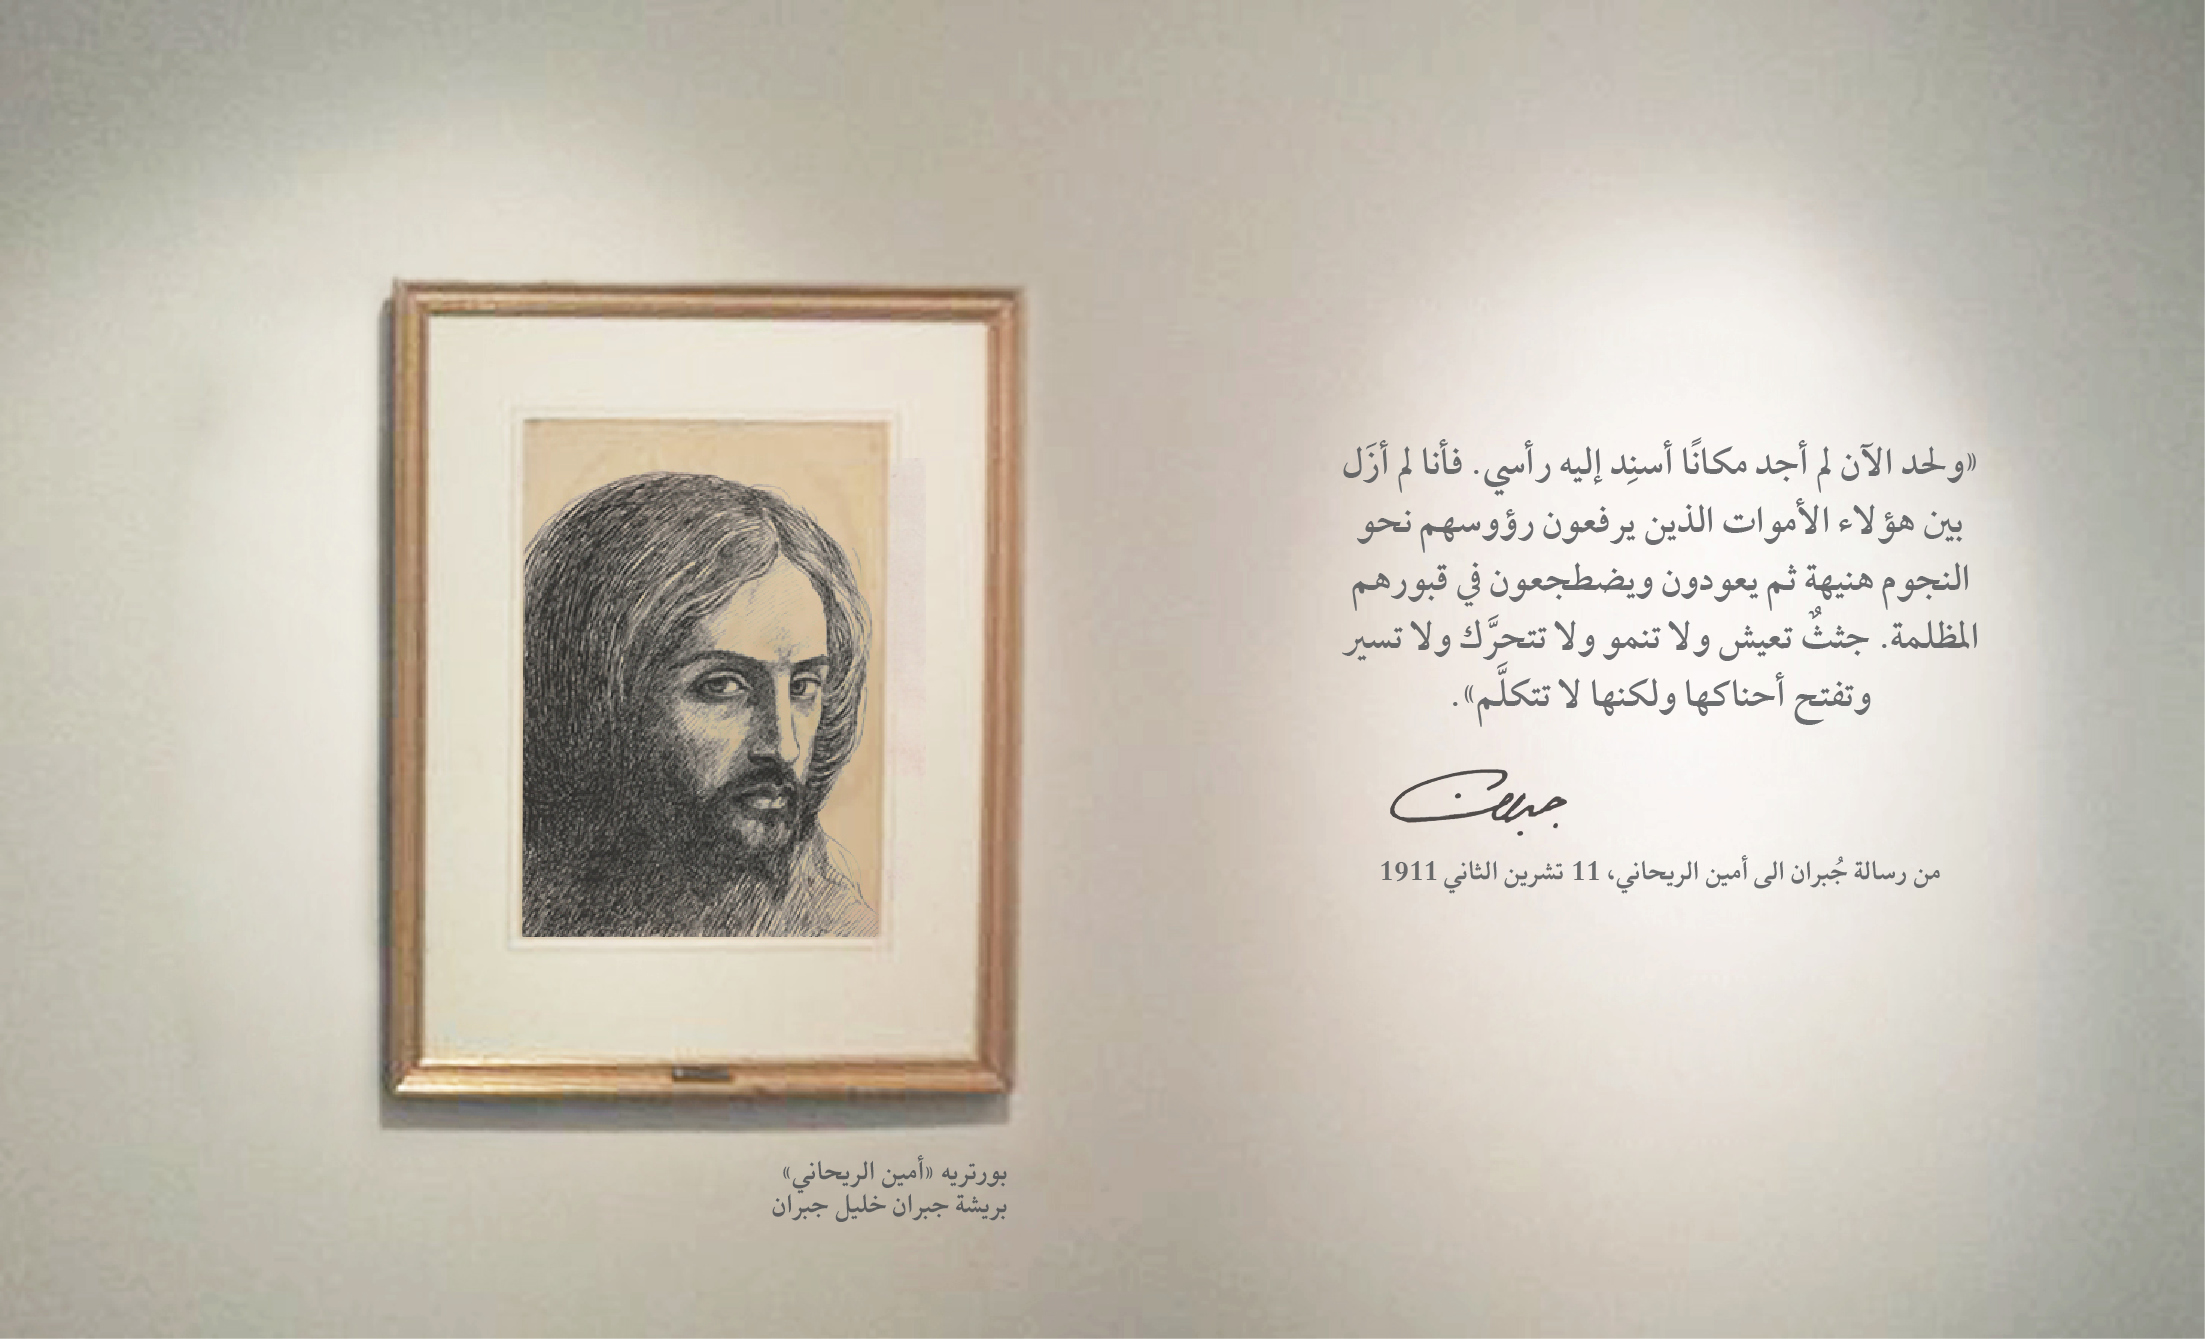 «ولحد الآن لم أجد مكانًا أسنِد إليه رأسي. فأنا لم أزَل
بين هؤلاء الأموات الذين يرفعون رؤوسهم نحو
النجوم هنيهة ثم يعودون ويضطجعون في قبورهم
المظلمة. جثثٌ تعيش ولا تنمو ولا تتحرَّك ولا تسير
وتفتح أحناكها ولكنها لا تتكلَّم».
جبران
من رسالة جُبران الى أمين الريحاني، 11 تشرين الثاني 1911
بورتريه «أمين الريحاني»
بريشة جبران خليل جبران